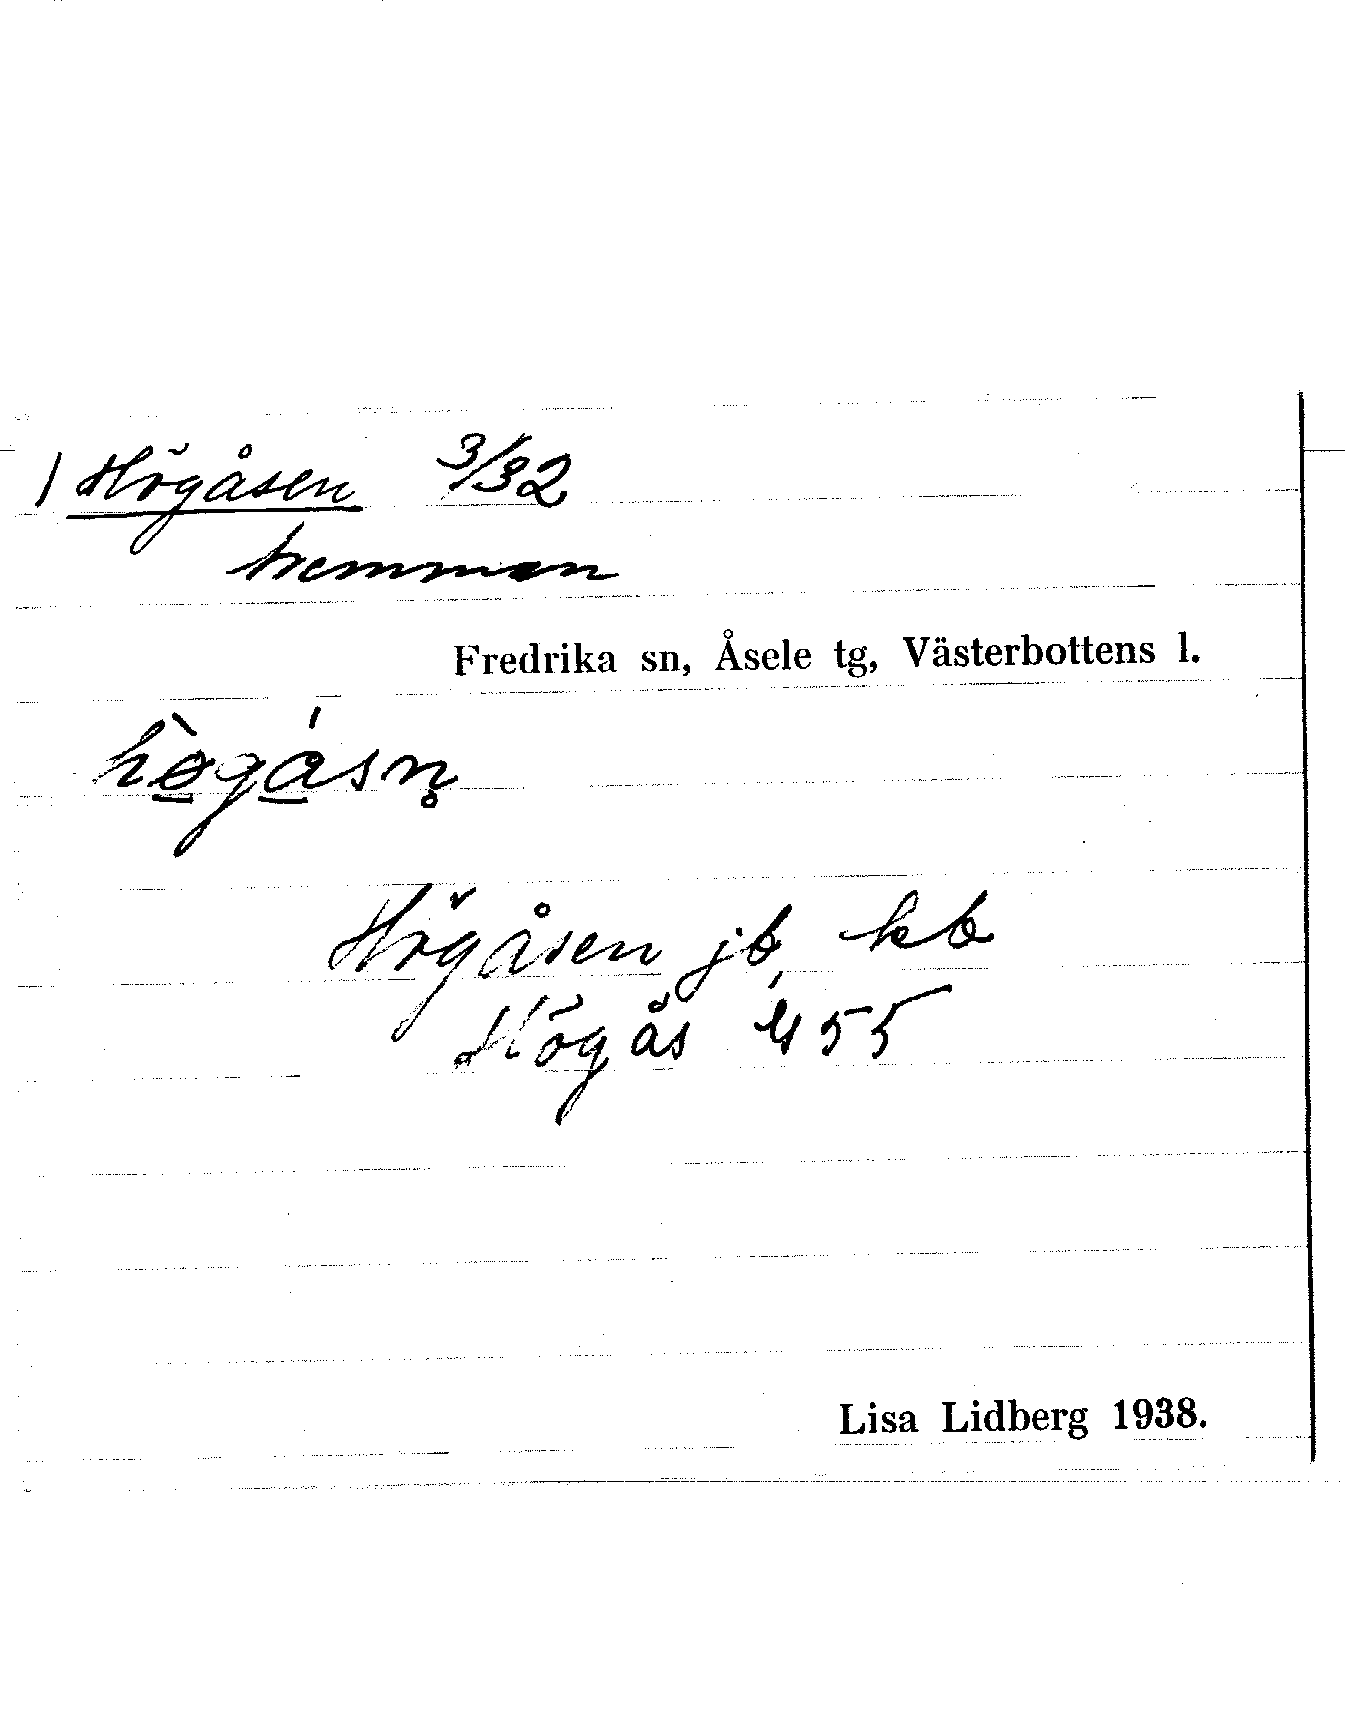 1 Högåsen 3/32
hemman
Fredrika sn, Åsele tg, Västerbottens l.
hø̱̀gá̱sn̥
Högåsen jb, kb
Högås 55
Lisa Lidberg 1938.